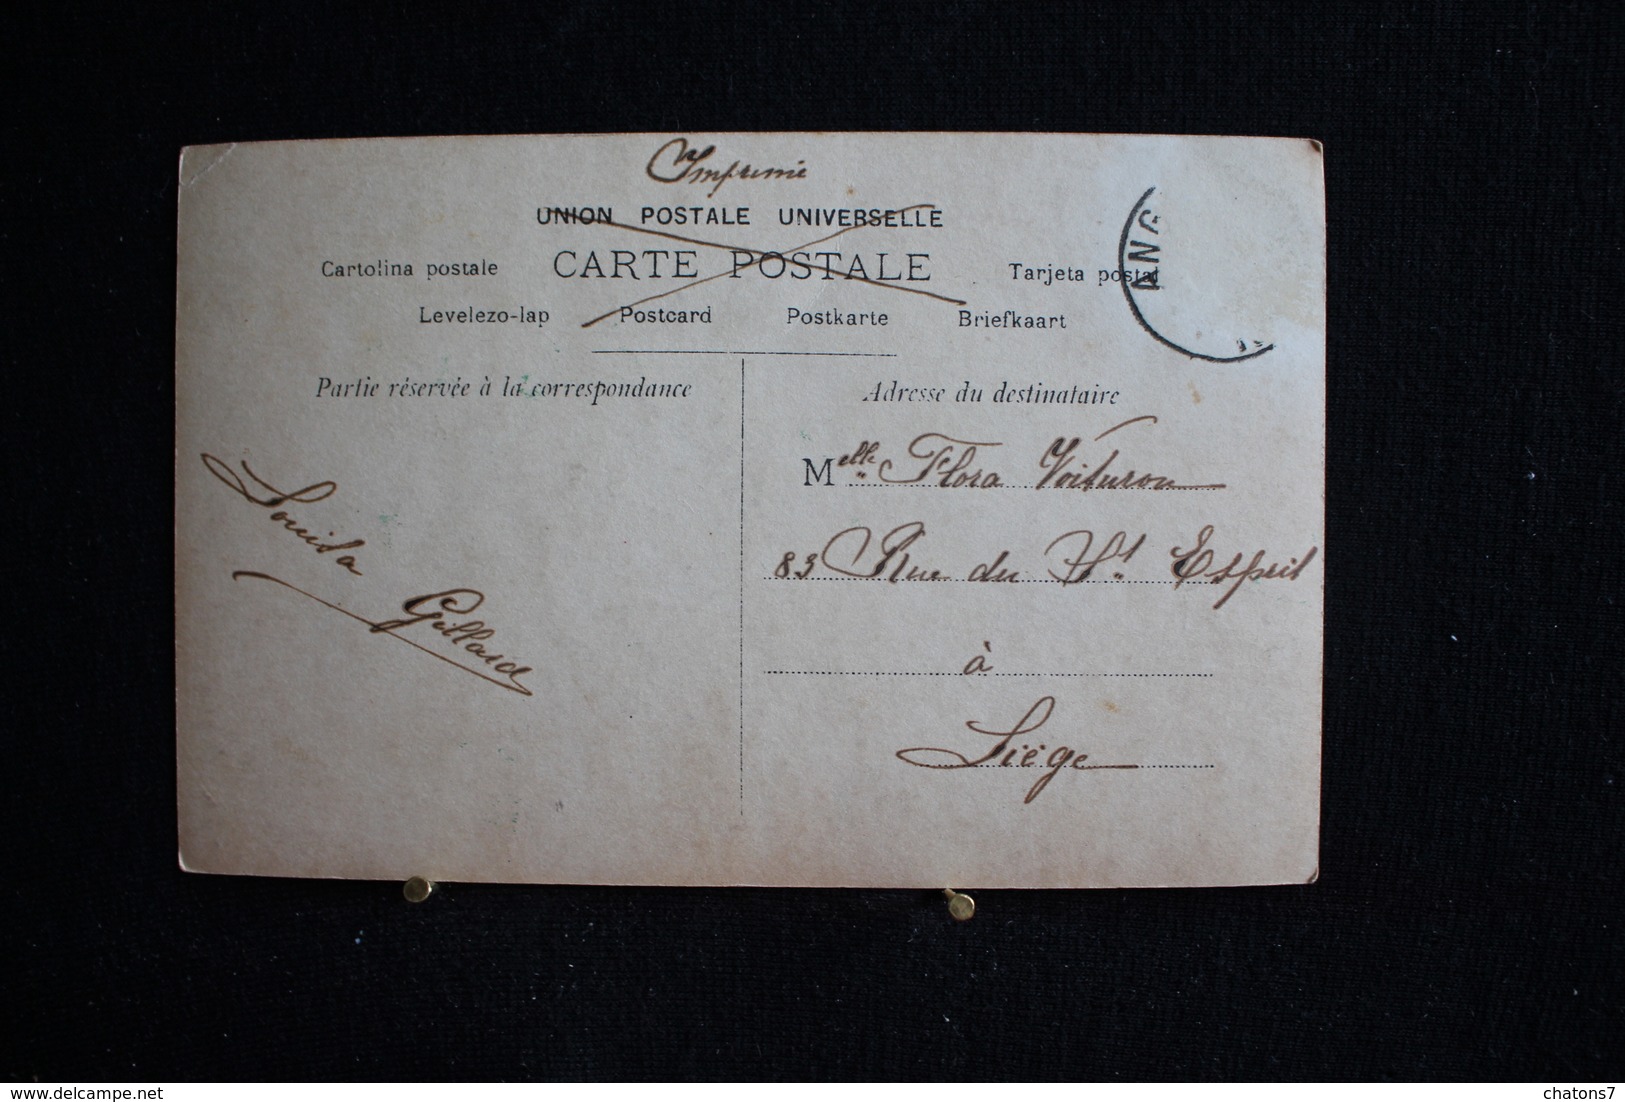 Imprimé
UNION POSTALE UNIVERSELLE
CARTE POSTALE
Cartolina postale
Tarjeta postal
Levelezo-lap Postcard Postkarte Briefkaart
Partie réservée à la correspondance
Louisa
Gillard
Adresse du destinataire
Melle Flora Voituron
83 Rue du St Esprit
à
Liège
ANG
chatons7